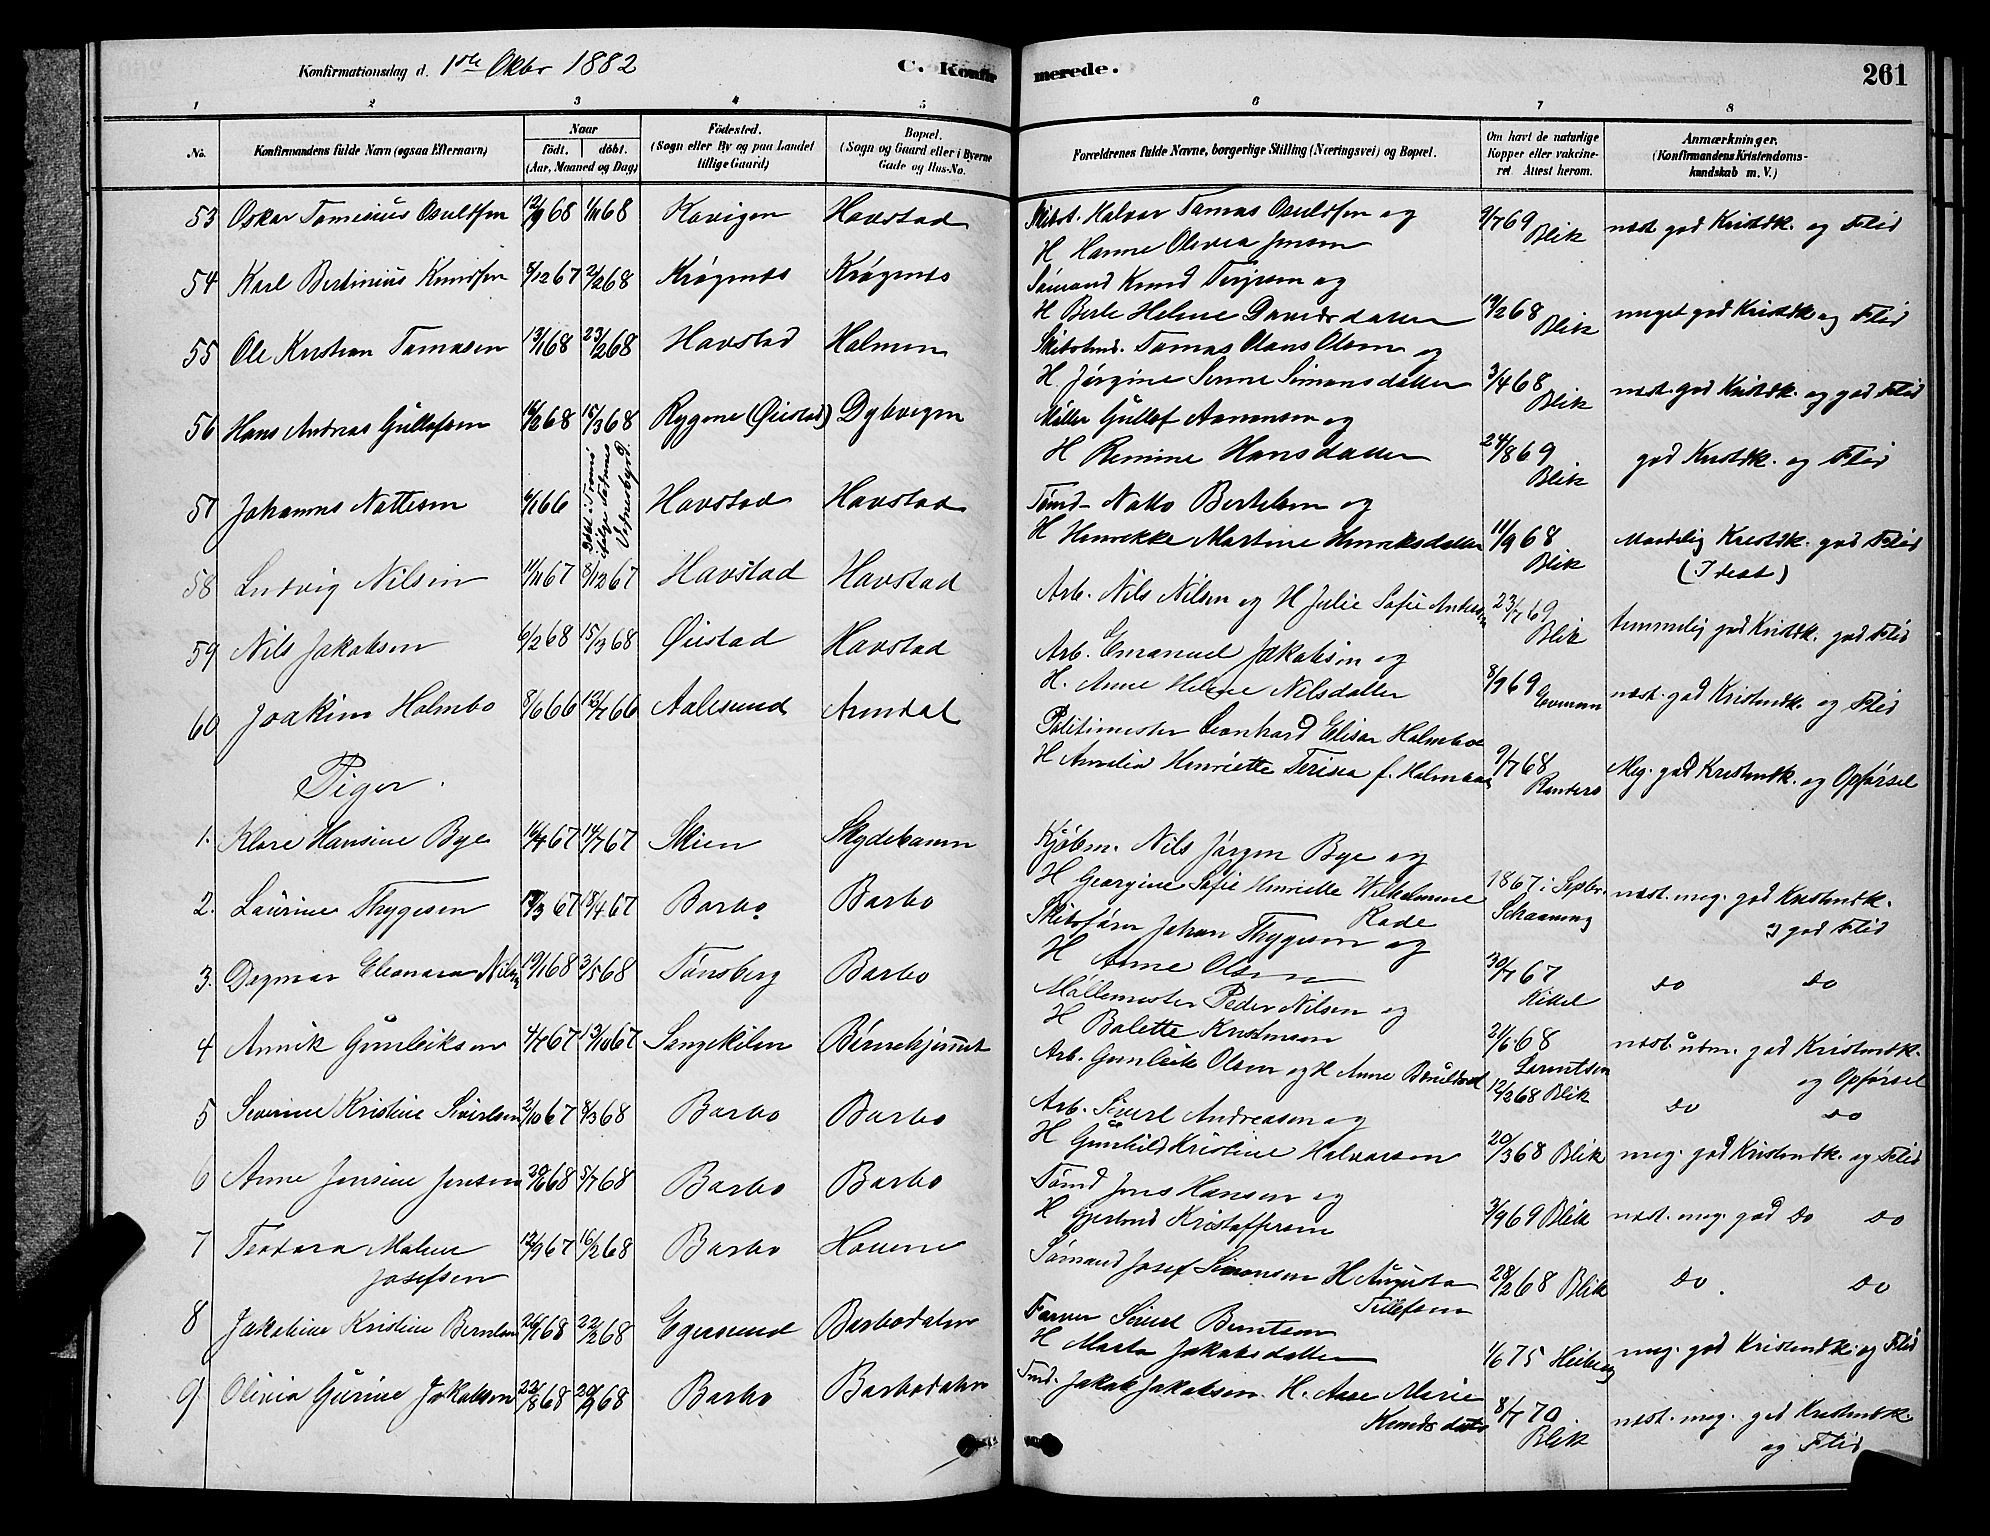 Konfirmationsdag d. 1ste Oktbr 1882
C. Konfirmerede.
261
1 2 3 4 5 6 7 8
No.
Konfirmandens fulde Navn (ogsaa Efternavn)
Naar
födt.
döbt.
(Aar, Maaned og Dag)
Födested.
(Sogn eller By og paa Landet tillige Gaard)
Bopæl.
(Sogn og Gaard eller i Byerne Gade og Hus-No.
Forældrenes fulde Navne, borgerlige Stilling (Næringsvei) og Bopæl.
Om havt de naturlige Kopper eller vakcineret. Attest herom.
Anmærkninger.
(Konfirmandens Kristendomskundskab m. V.)
53 Oskar Tominius Osuldsen 12/9 68 1/11 68 Kavigen Havstad
Halvor Tomas Osuldsen og
H Hanne Olivia Jensen 9/7 69 Blik næst god Kristdk. og Flid
54 Karl Bertinius Knudsen 8/12 67 2/2 68 Krøgenes Krøgenes
Sømand Knud Terjesen og
H Berte Helene Davidsdatter 19/2 68 Blik meget god Kristdk og Flid
55 Ole Kristian Tomasen 13/1 68 23/2 68 Havstad Holmen
Tomas Olaus Olsen og
H. Jørgine Simonsdatter 3/4 68 Blik næst. god Kristdk. og god Flid
56 Hans Andreas Gullofsen 16/2 68 15/3 68 Rygene (Øiestad) Dybvigen
Møller Gullof Aanonsen og
H Remine Hansdatter 24/8 69 Blik god Kristdk. og Flid
57 Johannes Nattesen 6/1 66 Døbt i Tromø ifølge Vidnesbyrd. Havstad Havstad
Tømd. Natto Bertelsen og
H Henrikke Martine Henriksdatter 11/9 68 Blik Maadelig Kristdk. god Flid
58 Ludvig Nilsen 11/11 67 8/12 67 Havstad Havstad
Arb. Nils Nilsen og H Julie Sofie 23/7 69 Blik temmelig god Kristdk. god Flid
59 Nils Jakobsen 6/2 68 15/3 68 Øiestad Havstad
Arb. Emanuel Jakobsen og
H. Anne Helene Nilsdatter 8/9 69 næst. god Kristendk. og Flid
60 Joakim Holmbo 8/6 66 12/7 66 Aalesund Arendal
Politimester Leonhard Elisar Holmboe
H Amalia Henriette Teresa f. Holmboe 9/7 68 Randers Meg. god Kristendk. og Opførsel
Piger.
1. Klara Hansine Bye 16/4 67 14/7 67 Skien Skydebanen
Kjøbm. Nils Jørgen Bye og
H Georgine Sofie Henriette Wilhelmine Rode 1867 i Septbr. Schaaning næst. meg. god Kristendk. og god Flid
2. Laurine Thygesen 12/3 67 18/4 67 Barbo Barbo
Skibsfører Johan Thygesen og
H Anne Olsen 30/7 67 Kittel do do
3. Dagmar Eleonora Nilsen 19/1 68 3/5 68 Tønsberg Barbo
Møllemester Peder Nilsen og
H Bolette Kristensen 21/6 68 Lorentsen næst. udm. god Kristendk. og Opførsel
4 Annik Gunleiksen 4/7 67 13/10 67 Songekilen Børnehjemmet
Arb. Gunleik Olsen og H Anne 12/2 68 Blik do do
5 Severine Kristine Sivertsen 2/10 67 8/3 68 Barbo Barbo
Arb. Sivert Andreasen og
H Gunhild Kristine Halvorsen 20/3 68 Blik meg. god Kristendk. og Flid
6 Anne Jensine Jensen 20/6 68 5/7 68 Barbo Barbo
Tømd Jens Hansen og
H Gjertrud Kristoffersen 3/9 69 Blik næst. meg. god do do
7 Teodora Malene Josefsen 12/9 67 16/2 68 Barbo Hovene
Sømand Josef Simonsen H Augusta Tellefsen 28/2 68 Blik do. do
8 Jakobine Kristine Berntsen 26/1 68 22/2 68 Egersund Barbodalen
Farver Sivert Berntsen
H Marta Jakobsdatter 1/6 75 Heiberg meg. god Kristendk. og Flid
9 Olivia Gurine Jakobsen 22/8 68 20/9 68 Barbo Barbodalen
Tmd. Jakob Jakobsen. H. Anne Marie Knudsdatter 8/7 70 Blik næst. meg. god Kristendk. og Flid